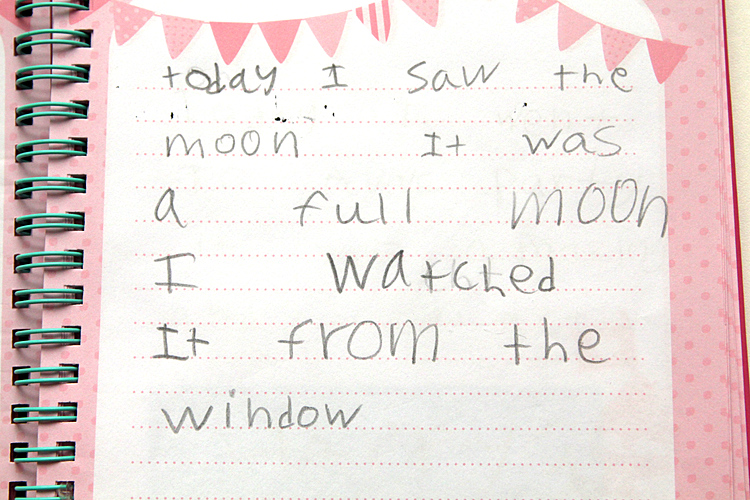 today I saw the
moon It was
a full moon
I watched
It from the
window